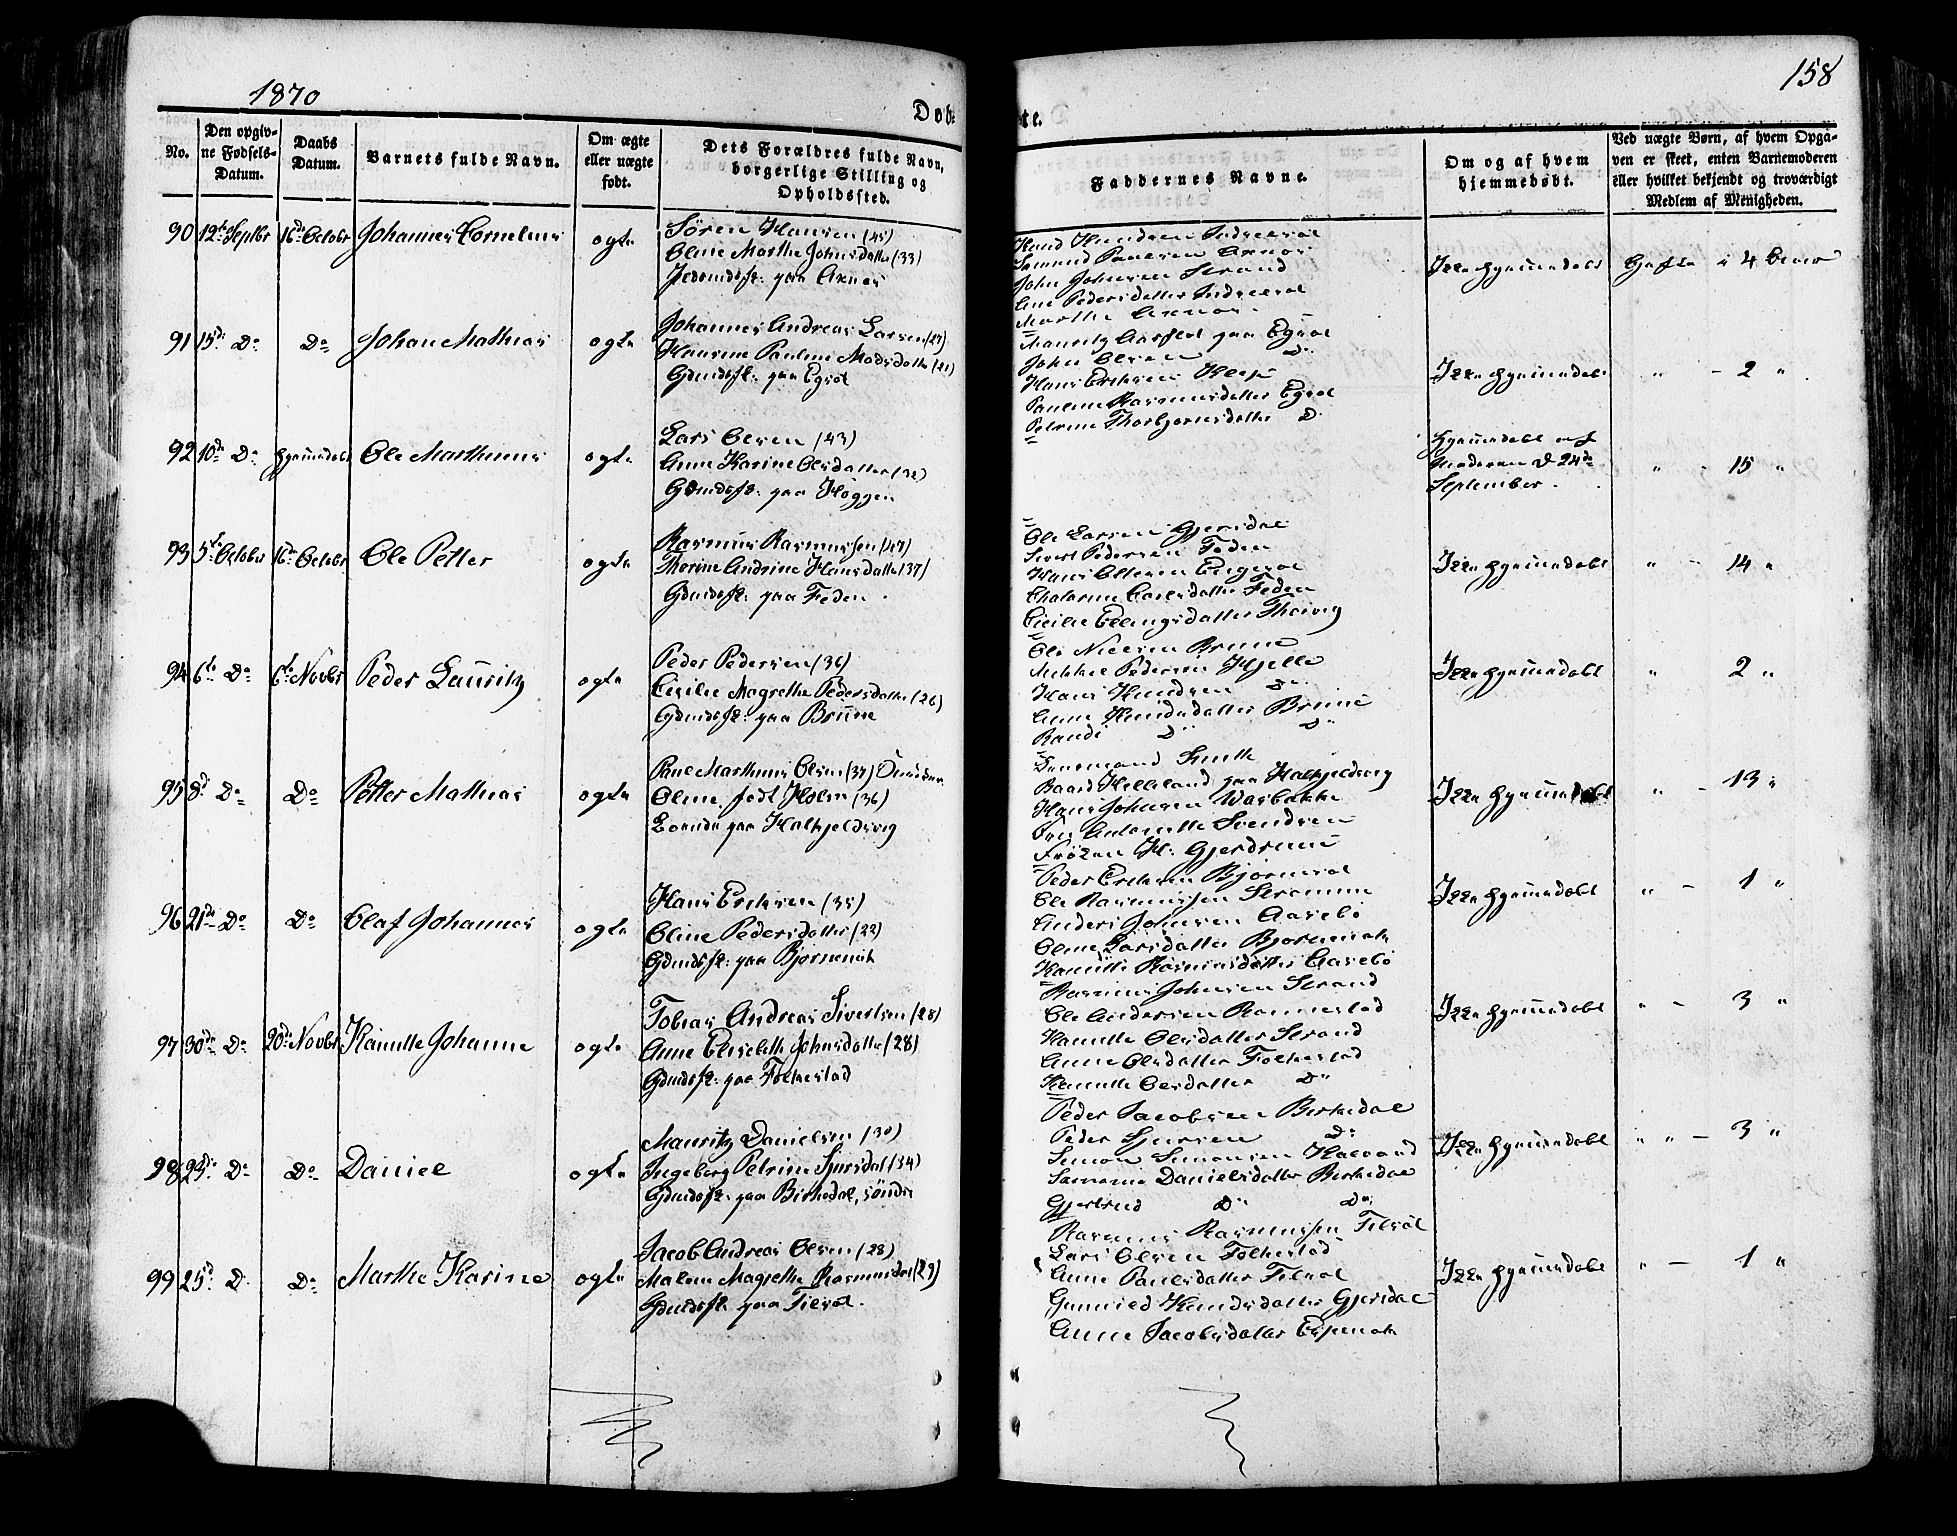 1870
158
Døbte.
No.
Den opgivne Fødsels-Datum.
Daabs Datum.
Barnets fulde Navn.
Om ægte eller uægte født.
Dets Forældres fulde Navn, borgerlige Stilling og Opholdssted.
Faddernes Navne.
Om og af hvem hjemmedøbt.
Ved uægte Børn, af hvem Opgaven er skeet, enten Barnemoderen eller hvilket bekjendt og troværdigt Medlem af Menigheden.
90 12te Septbr 16de Octobr Johannes Cornelius ægte
Søren Hansen (45)
Oline Marthe Johnsdatter (33)
paa Aknes
Knud Knudsen
Samund Paulsen Aknes
John Johnsen Strand
Ane Pedersdatter
Marthe Aknes
Ikke hjemmedøbt
4
91 15de Do Do Johan Mathias ægte
Johannes Andreas Larsen (27)
Hansine Pauline Madsdatter (21)
Gdmdsf: paa Egset
Mauritz Aarflot paa Egset
John Olsen Do
Hans Eriksen
Pauline Rasmusdatter Egset
Petrine Thorbjørnsdatter Do
Ikke hjemmedøbt
" - 2 "
92 10de Do hjemmedøbt Ole Marthinus ægte
Lars Olsen (43)
Anne Karine Olsdatter (32)
Gdmdsf: paa Høggen
hjemmedøbt af
Moderen d 24de
September.
" - 15 "
93 5te October 16de Octobr Ole Petter ægte
Rasmus Rasmussen (47)
Thorine Andrine Hansdatter (37)
Gdmdsf: paa Feden.
Ole Larsen Gjersdal
Sivert Pedersen Feden
Hans Ellersen
Cathrine Carlsdatter Feden
Cicilie Ellingsdatter
Ikke hjemmedøbt
" - 14 "
94 6te Do 6te Novbr Peder Lauritz ægte
Peder Pedersen (36)
Cicilie Magrethe Pedersdatter (26)
Gdmdsf: paa Brune
Ole Nilsen Brune
Mikkel Pedersen Hjelle
Hans Knudsen Do
Anne Knudsdatter Brune
Randi Do Do
Ikke hjemmedøbt
" 2 "
95 8de Do Do Petter Mathias ægte
Paul Marthinus Olsen (37)
Oline født Holm (36)
paa Halkjeldsvig
Smith
Baard Helleland paa Halkjeldsvig
Hans Johnsen Vasbakke
Antonette Svendsen
Frøken H: Gjerdrum
Ikke hjemmedøbt
" - 13 "
96 21de Do Do Olaf Johannes ægte
Hans Eriksen (35)
Oline Pedersdatter (22)
Gdmdsf: paa Bjørnenak
Peder Eriksen
Ole Rasmussen Strømme
Anders Johnsen Aasebø
Oline Larsdatter Bjørnenak
Kanutte Rasmusdatter Aasebø
Ikke hjemmedøbt
" - 1 "
97 30de Do 20de Novbr Kanutte Johanne ægte
Tobias Andreas Sivertsen (28)
Anne Elisebeth Johnsdatter (28)
Gdmdsf: paa Folkestad
Rasmus Johnsen Strand
Ole Andersen Rannestad
Kanutte Olsdatter Strand
Anne Olsdatter Folkestad
Kanutte Olsdatter Do
Ikke hjemmedøbt
" - 3 "
98 23de Do Do Daniel ægte
Mauritz Danielsen (30)
Ingeborg Petrine Sjursdat (34)
Gdmdsf: paa Birkedal, søndre
Peder Jacobsen Birkedal
Peder Sjursen Do
Simon Simonsen
Danielsdatter Birkedal
Gjertrud Do Do
Ikke hjemmedøbt
" " - 3 "
99 25de D. Do Marthe Karine ægte
Jacob Andreas Olsen (28)
Malene Magrethe Rasmusdat (29)
Gdmdsf: paa Filset.
Rasmus Rasmussen Filset
Lars Olsen Folkestad
Anne Paulsdatter Filset
Gunnild Knudsdatter Gjersdal
Anne Jacobsdatter Espenak
Ikke hjemmedøbt
" - 1 "